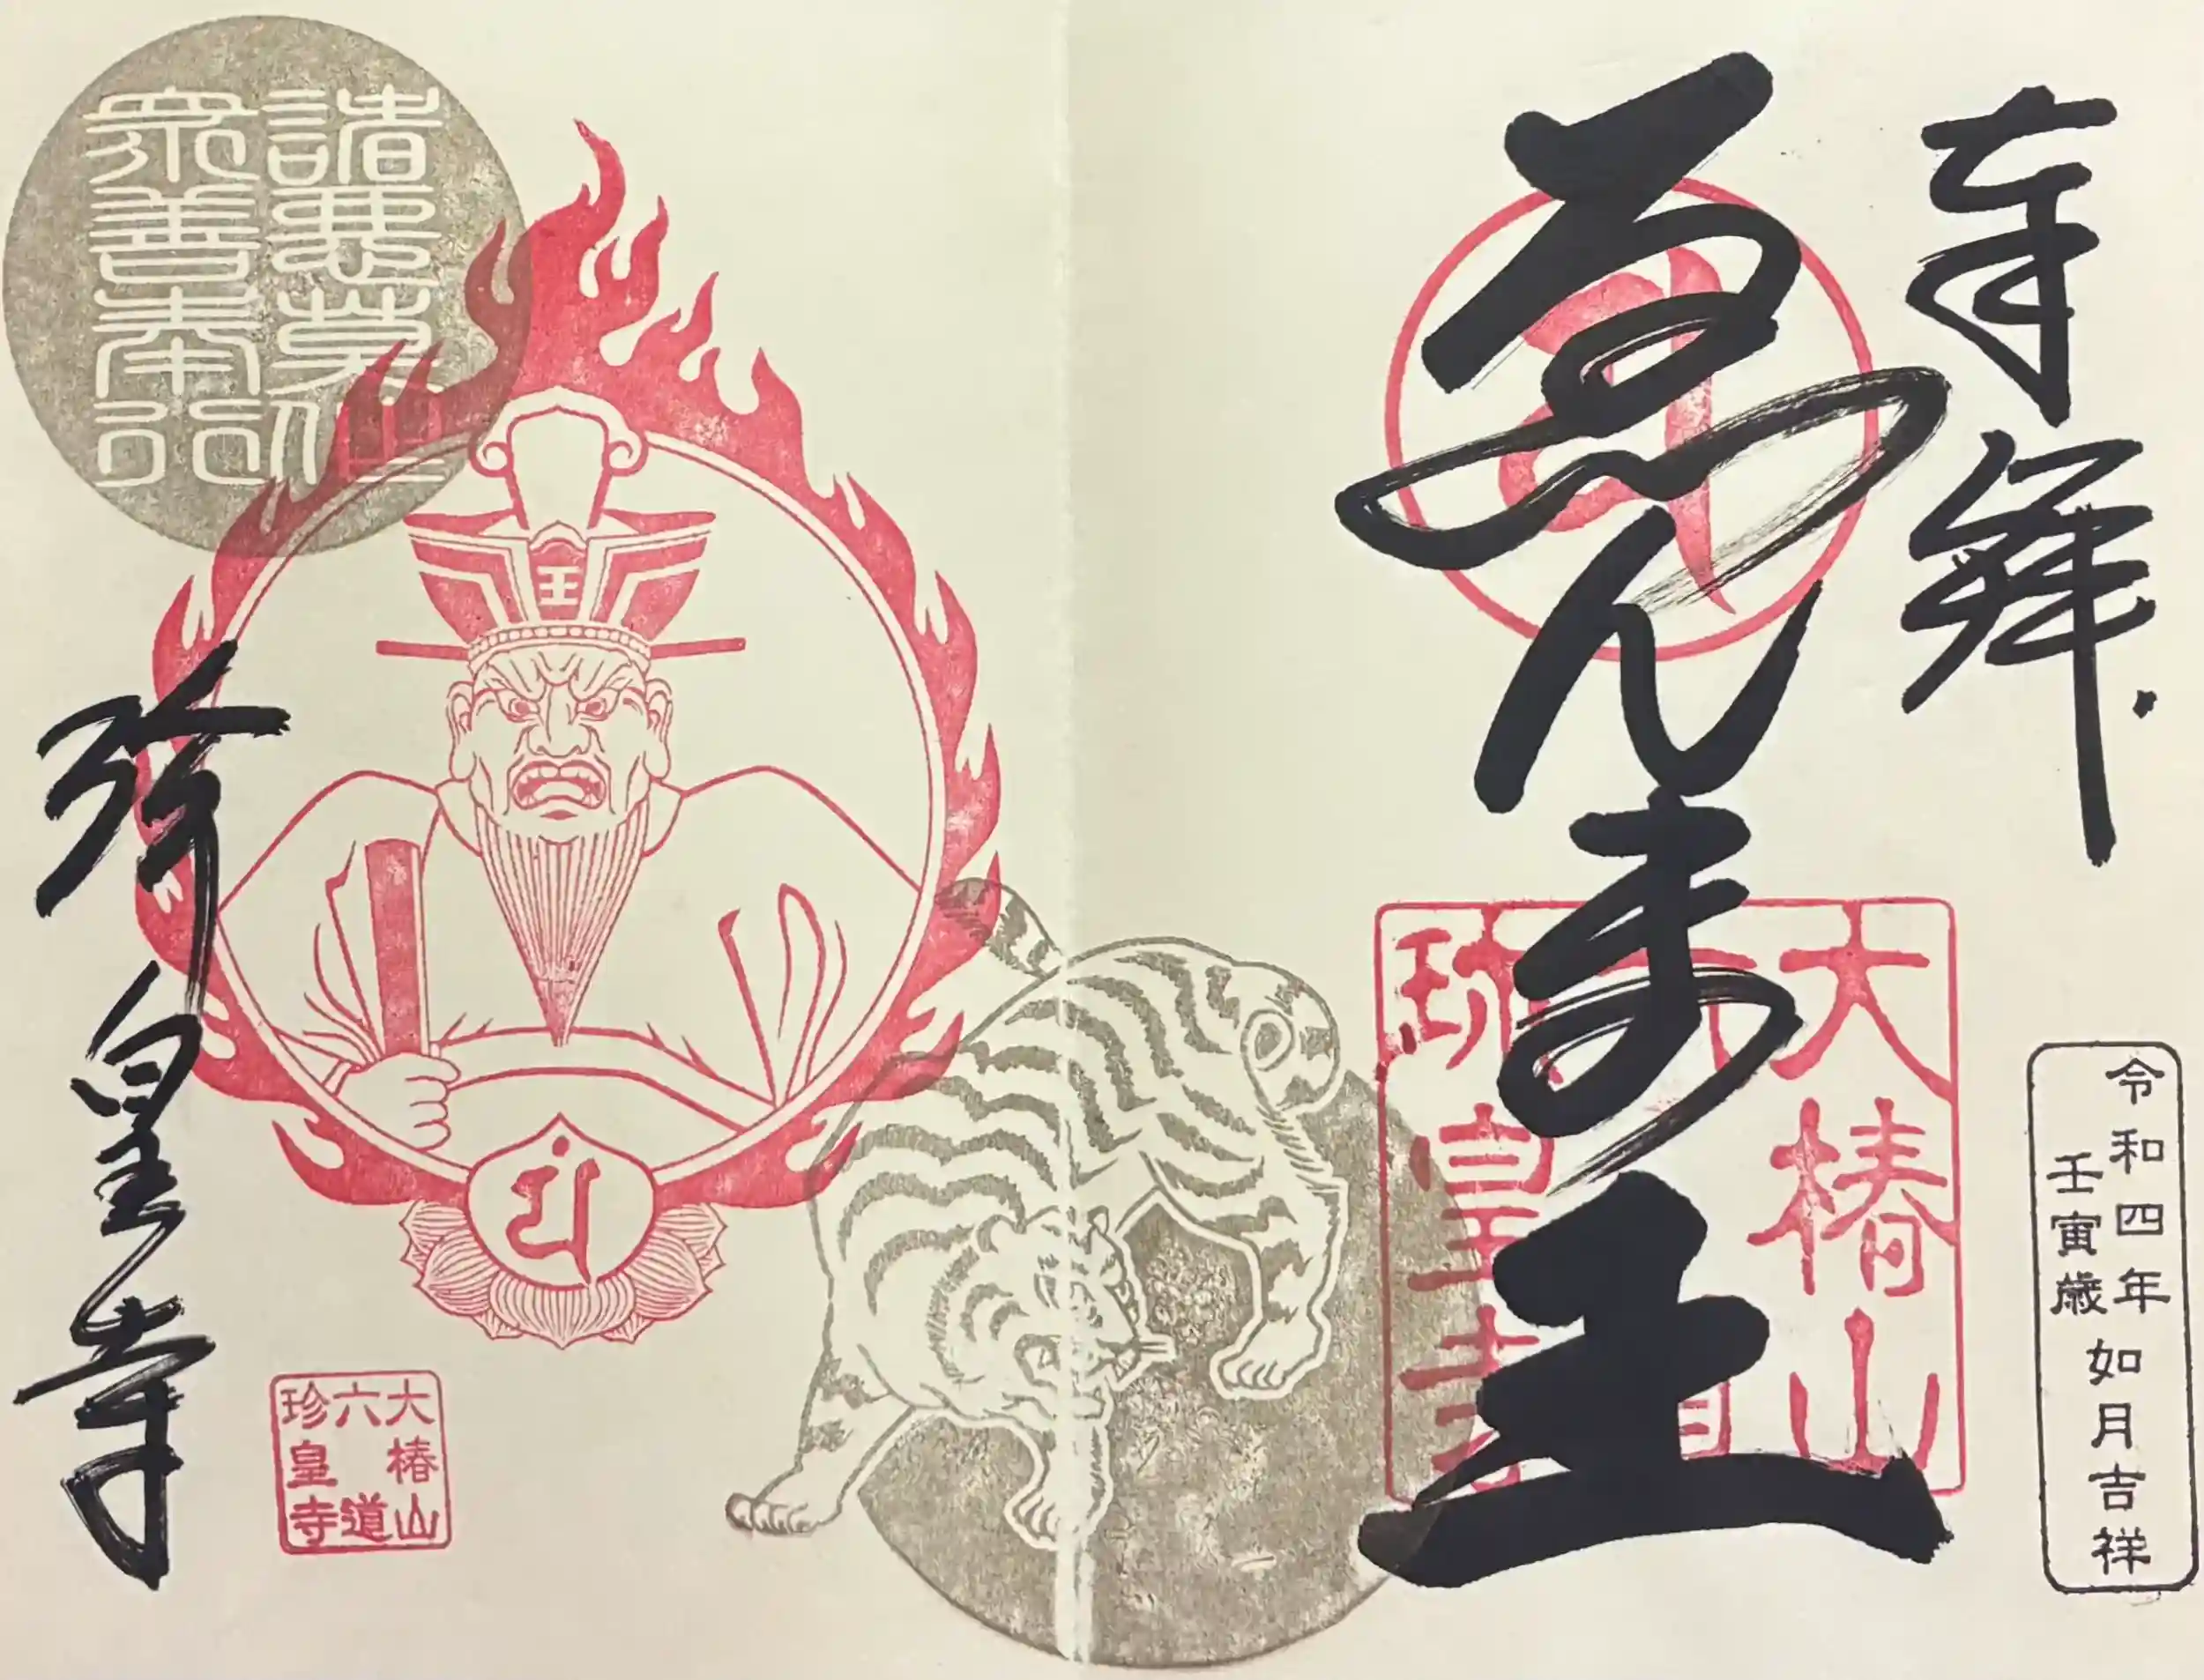 奉拝
令和四年
壬寅歳
如月吉祥
ゑんま王
大椿山
六道
珍皇寺
諸惡莫作
衆善奉行
王
珍皇寺
大椿山
六道
珍皇寺